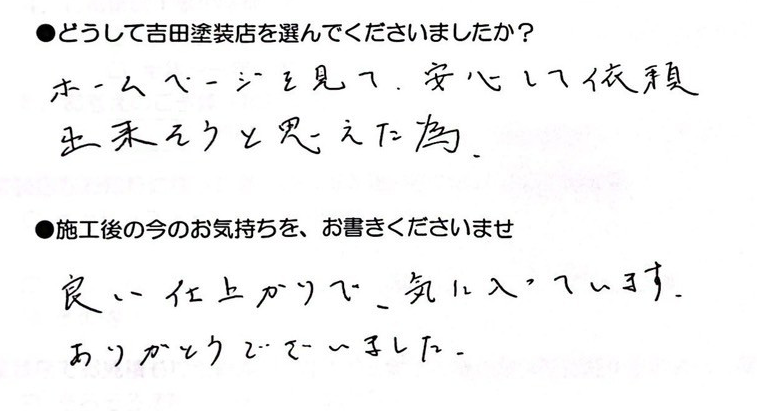 ●どうして吉田塗装店を選んでくださいましたか？
ホームページを見て、安心して依頼
出来そうと思えた為。
●施工後の今のお気持ちを、お書きくださいませ
良い仕上がりで、気に入っています。
ありがとうございました。